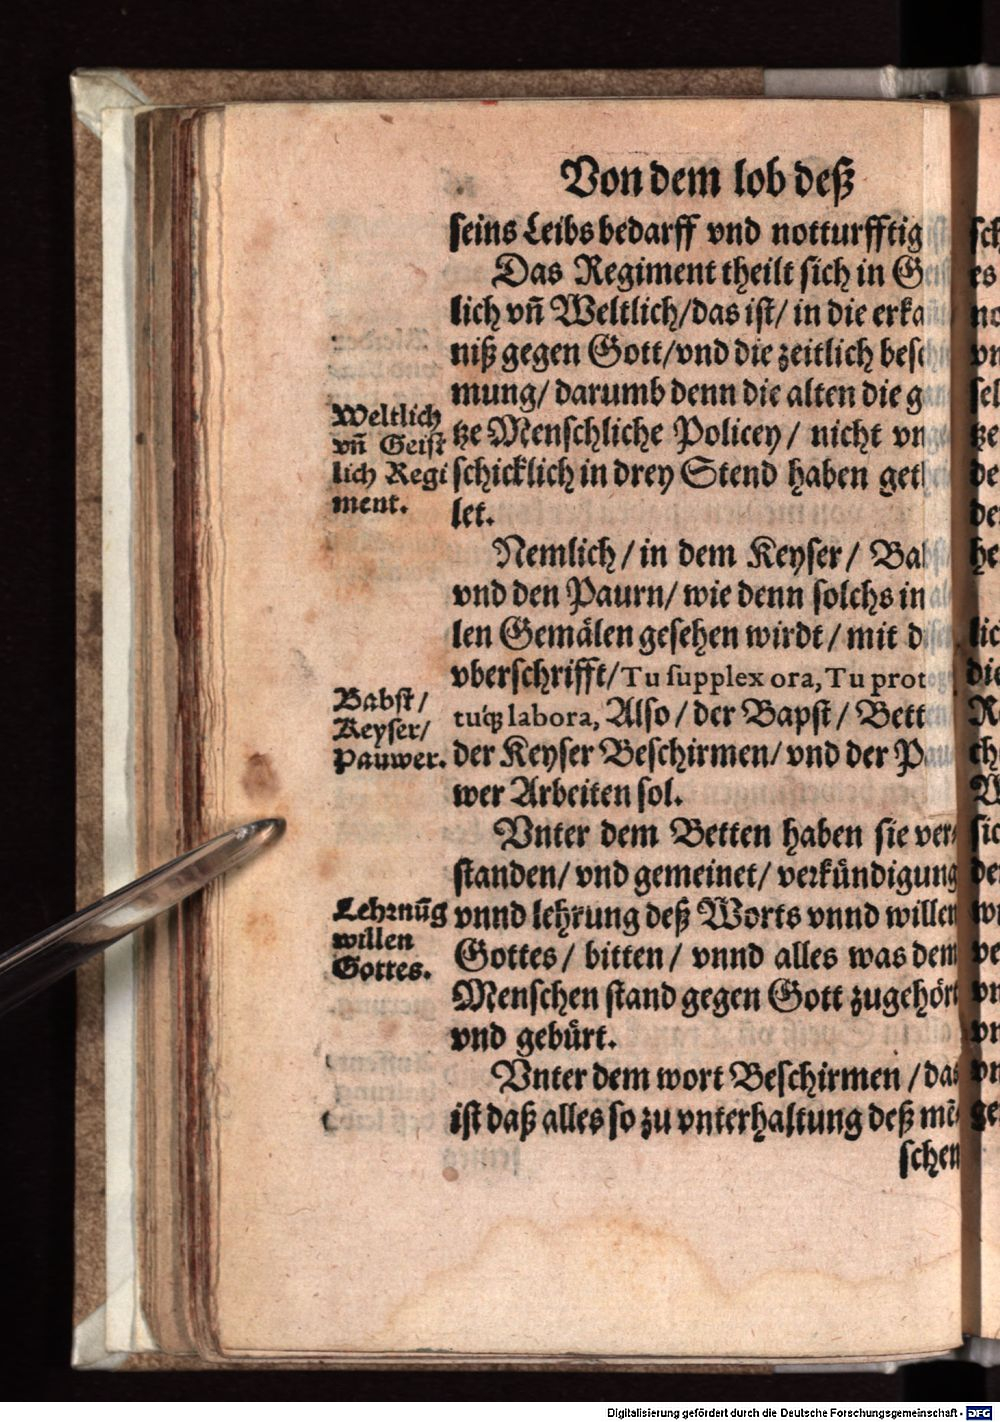 Von dem lob deß
seins Leibs bedarff vnd notturfftig
Das Regiment theilt sich in G
lich vñ Weltlich/das ist/ in die erka
niß gegen Gott/vnd die zeitlich besch
mung/ darumb denn die alten die g
tze Menschliche Policey/ nicht vn
schicklich in drey Stend haben geth
let.
Weltlich
vñ Geist
lich Regi
ment.
Nemlich/in dem Keyser/ Bab
vnd den Paurn/ wie denn solchs in
len Gemälen gesehen wirdt/ mit d
vberschrifft/Tu supplex ora, Tu prot
tu'qꝫ labora, Also/ der Bapst/ Bett
der Keyser Beschirmen/ vnd der P
wer Arbeiten sol.
Babst/
Keyser/
Pauwer.
Vnter dem Betten haben sie ver-
standen/ vnd gemeinet/ verkündigung
vnnd lehrung deß Worts vnnd willen
Gottes/ bitten/ vnnd alles was dem
Menschen stand gegen Gott zugehört
vnd gebürt.
Lehrnũg
willen
Gottes.
Vnter dem wort Beschirmen/das
ist daß alles so zu vnterhaltung deß mē-
schen
Digitalisierung gefördert durch die Deutsche Forschungsgemeinschaft - DFG